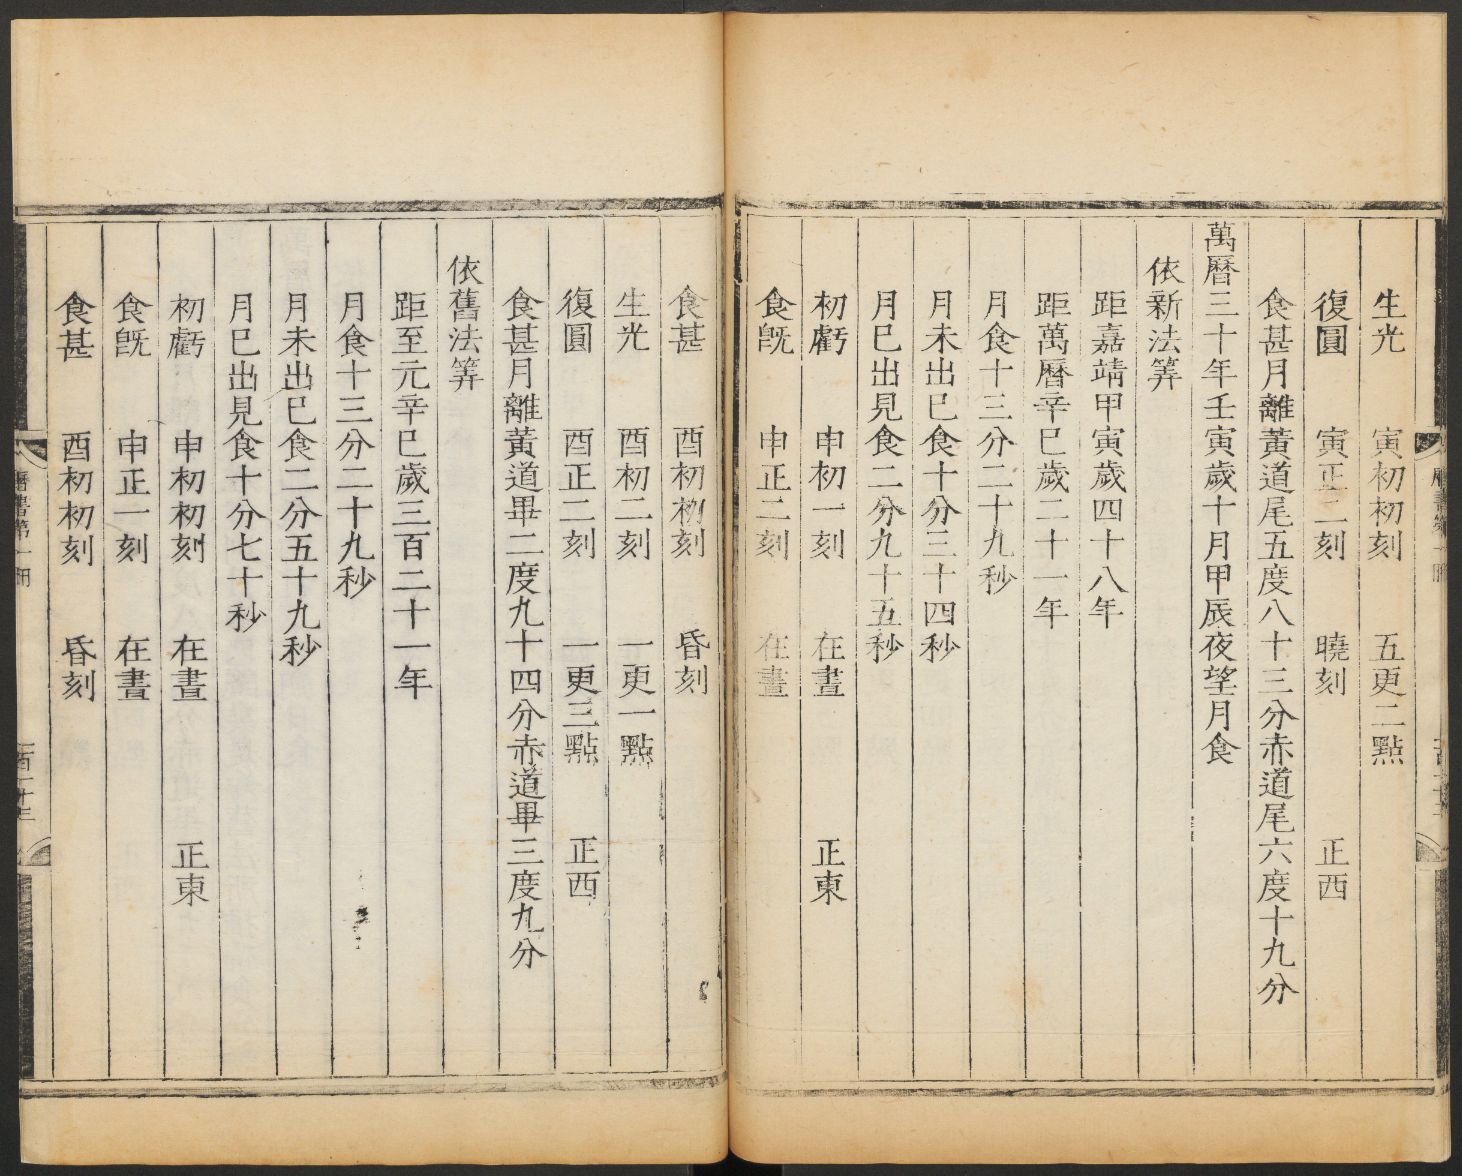 生光　寅初初刻　五更二點
復圓　寅正二刻　曉刻　正西
食甚月離黃道尾五度八十三分赤道尾六度十九分
萬曆三十年壬寅歲十月甲辰夜望月食
依新法筭
距嘉靖甲寅歲四十八年
距萬曆辛巳歲二十一年
月食十三分二十九秒
月未出已食十分三十四秒
月已出見食二分九十五秒
初虧　申初一刻　在晝　正東
食旣　申正二刻　在晝
食甚　酉初初刻　昏刻
生光　酉初二刻　一更一點
復圓　酉正二刻　一更三點　正西
食甚月離黃道畢二度九十四分赤道畢三度九分
依舊法筭
距至元辛巳歲三百二十一年
月食十三分二十九秒
月未出已食二分五十九秒
月已出見食十分七十秒
初虧　申初初刻　在晝　正東
食旣　申正一刻　在晝
食甚　酉初初刻　昏刻
曆書第一冊